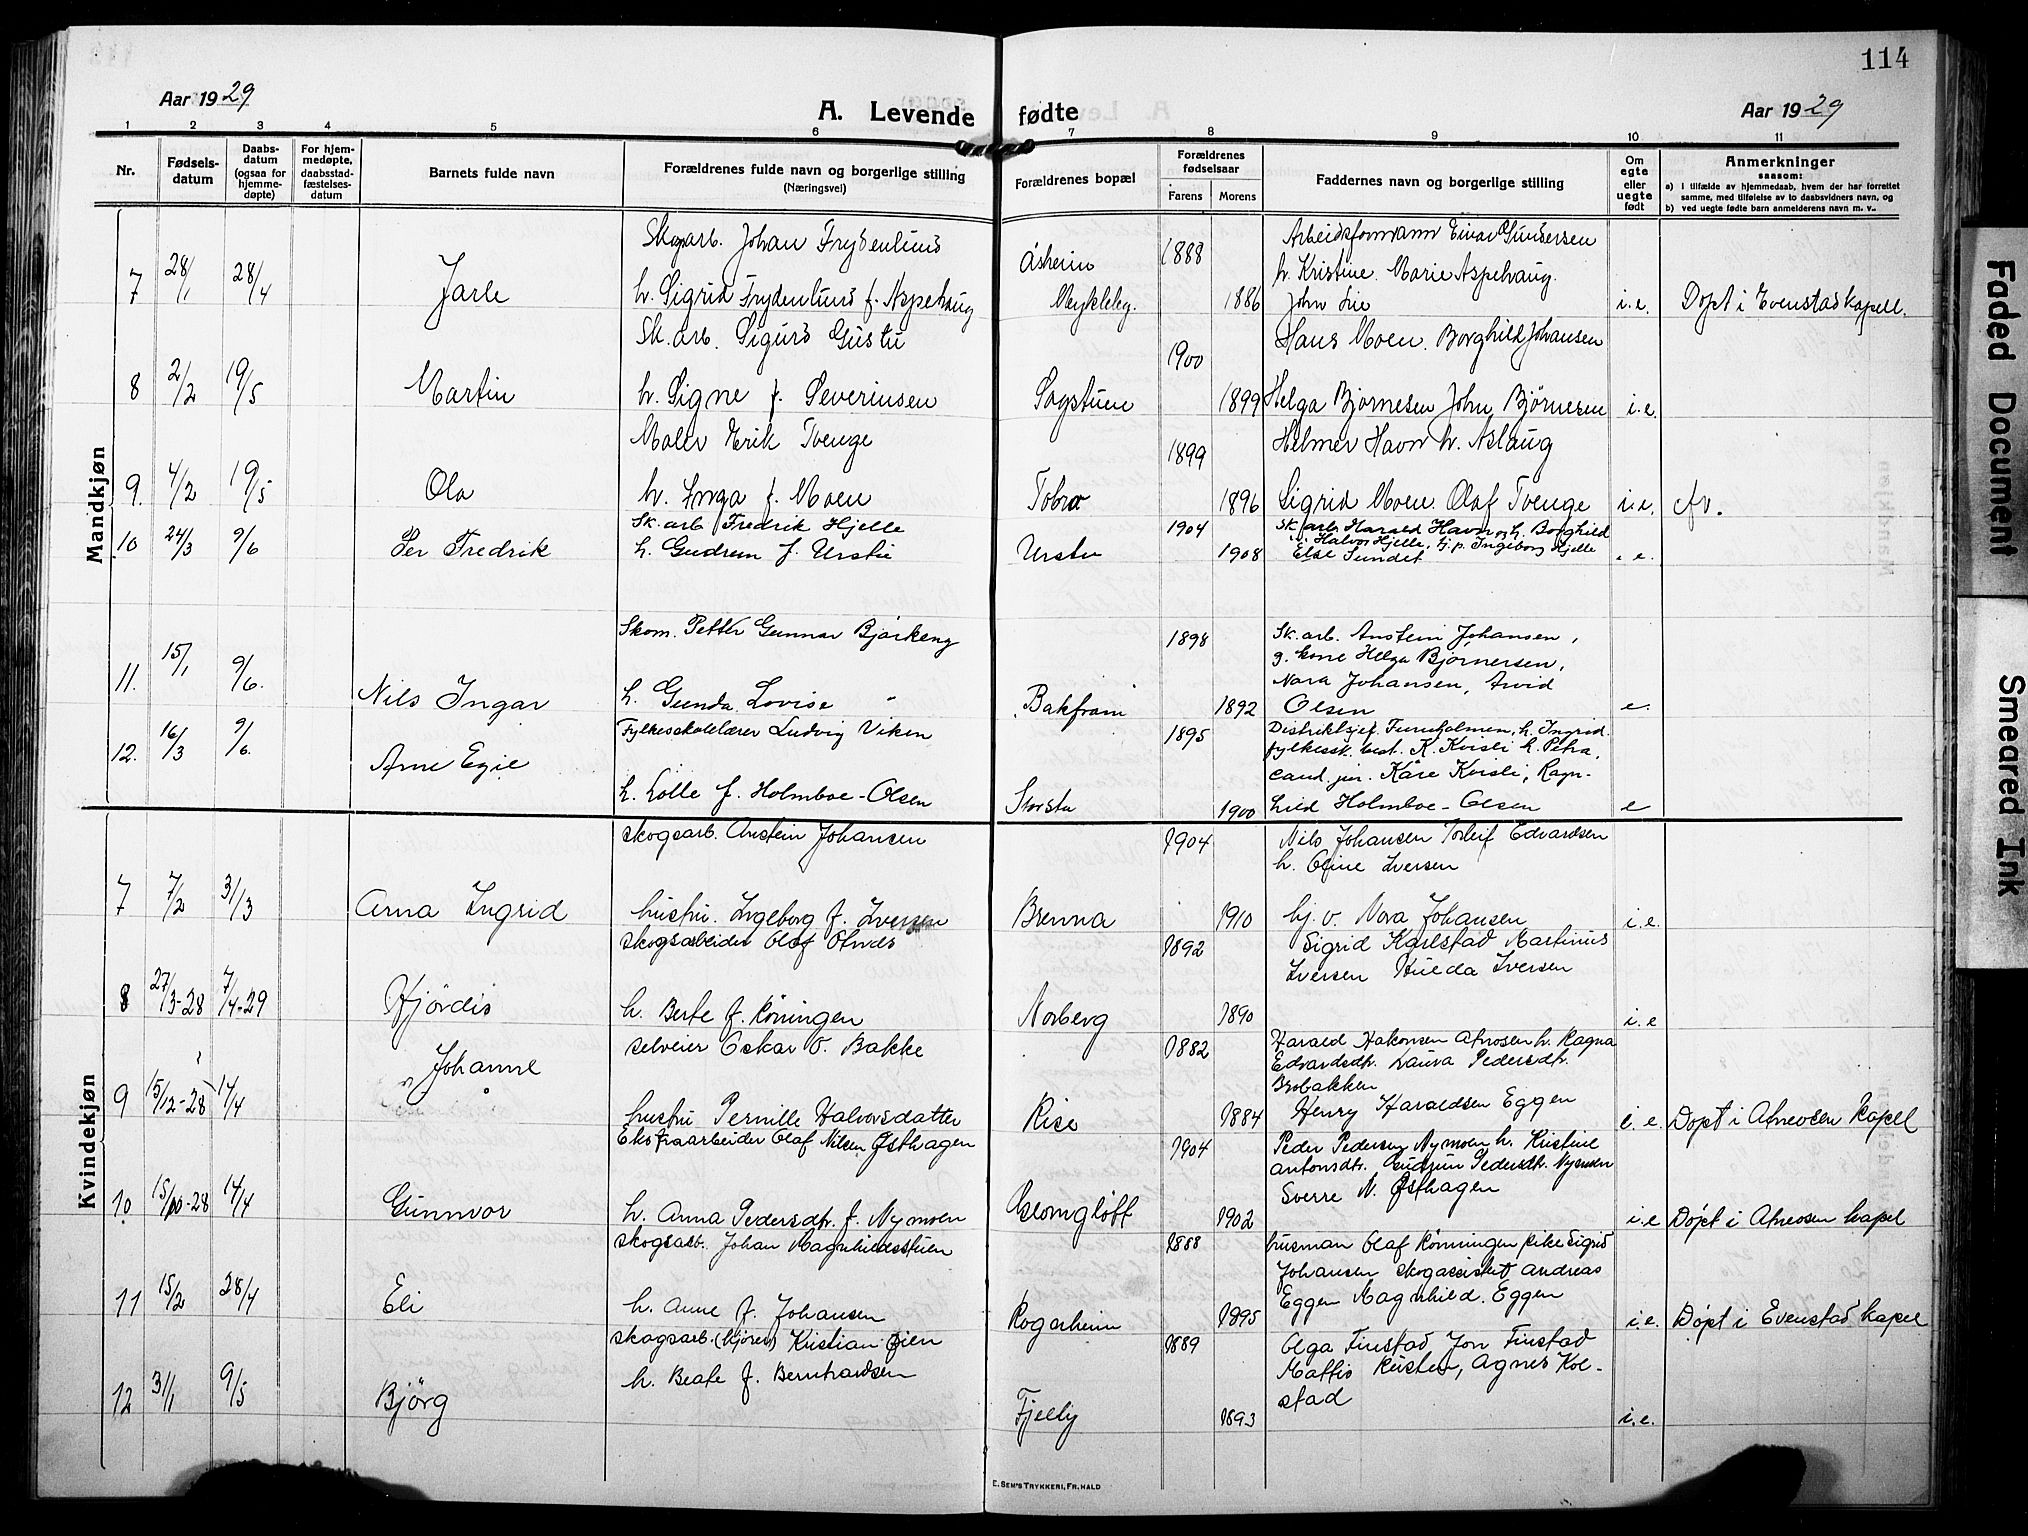 114
Aar 1929
A. Levende fødte
Aar 1929
1 2 3 4 5 6 7 8 9 10 11
Nr.
Fødsels-
datum
Daabs-
datum
(ogsaa for
hjemme-
døpte)
For hjem-
medøpte,
daabsstad-
fæstelses-
datum
Barnets fulde navn
Forældrenes fulde navn og borgerlige stilling
(Næringsvei)
Forældrenes bopæl
Forældrenes
fødselsaar
Farens Morens
Faddernes navn og borgerlige stilling
Om
egte
eller
uegte
født
Anmerkninger
saasom:
a) i tilfælde av hjemmedaab, hvem der har forrettet
samme, med tilføielse av to daabsvidners navn, og
b) ved uegte fødte barn anmelderens navn m. v.
Mandkjøn
Skogarb. Johan Frydenlund 1888 Arbeidsformann Einar Gundersen
Åsheim h. Kristine. Marie Aspehaug.
7 28/1 28/4 Jarle h. Sigrid Frydenlund f. Aspehaug Mykleby. 1886 John Lie i.e. Døpt i Evenstad kapell.
Sk. arb. Sigurd Gustu 1900 Hans Moen. Borghild Johansen
8 2/2 19/5 Martin h. Signe f. Severinsen Sagstuen 1899 Helga Bjørnesen John Bjørnesen i.e.
Maler Erik Tvenge 1899 Helmer Havn h. Aslaug
9. 4/2 19/5 Ola h. Inga f. Moen Tobro 1896 Sigrid Moen. Olaf Tvenge i.e.
Sk. arb. Fredrik Hjelle 1904 Sk. arb. Harald Havn og h. Borghild
Halvor Hjelle, Ingeborg Hjelle
10 24/3 9/6 Per Fredrik h. Gudrun f. Urstu Urstu 1908 Else Sundet e.
Skom. Petter Gunnar Bjørkeng 1898 Sk. arb. Anstein Johansen,
g. kone Helga Bjørnersen,
Nora Johansen, Arvid
11. 15/1 9/6. Nils Ingar h. Gunda Lovise " Bakfram 1892 Olsen e.
Fylkesskolelærer Ludvig Viken 1895 Distriktssjef Furuholmen, h. Ingrid.
fylkessk. best. K. Kvisli h. Petra,
12. 16/3 9/6. Arne Egil cand. jur. Kåre Kvisli, Ragn-
h. Lolle f. Holmboe-Olsen Storstu 1900 hild Holmboe-Olsen e
Kvindekjøn
skogsarb. Anstein Johansen 1904 Nils Johansen Torleif Edvardsen
h. Oline Iversen
7 7/2 31/3 Arna Ingrid hustru. Ingeborg f. Iversen Brenna 1910 Nora Johansen i.e.
skogsarbeider Olaf 1892 Sigrid Karlstad Martinus
Iversen Hulda Iversen
8 27/3-28 7/4-29 Hjördis h. Berte f. Röningen Norberg 1890 i.e
selveier Oskar O. Bakke 1882 Harald Hakonsen Atneosen h. Ragna
Edvardsdtr. Laura Pedersdtr.
Brobakken
9 15/12-28 14/4 Johanne hustru Pernille Halvorsdatter Rise 1884 Henry Haraldsen Eggen i.e. Døpt i Atneosen kapel
Ekstraarbeider Olaf Nilsen Østhagen 1904 Peder Pedersen Nymoen h. Kristine
Antonsdtr. Gudrun Pedersdtr. Nymoen
Sverre N. Østhagen
10 15/10-28 14/4 Gunnvor h. Anna Pedersdtr. f. Nymoen 1902 i.e Døpt i Atneosen kapel
skogsarb. Johan Magnhildsstuen 1888 husman Olaf Rønningen pike Sigrid
Johansen skogassistent Andreas
Eggen Magnhild. Eggen
11 15/2 28/4 Eli h. Anne f. Johansen Rognheim 1895 i.e. Døpt i Evenstad kapel
skogsarb. (kjører) Kristian Øien 1889 Olga Finstad Jon Finstad
Mattis Kristen, Agnes Kol-
stad
12 31/1 9/5 Bjørg h. Beate f. Bernhardsen Fjelly 1893 i.e.
E. SEM'S TRYKKERI, FR. HALD
Faded Document
Smeared Ink